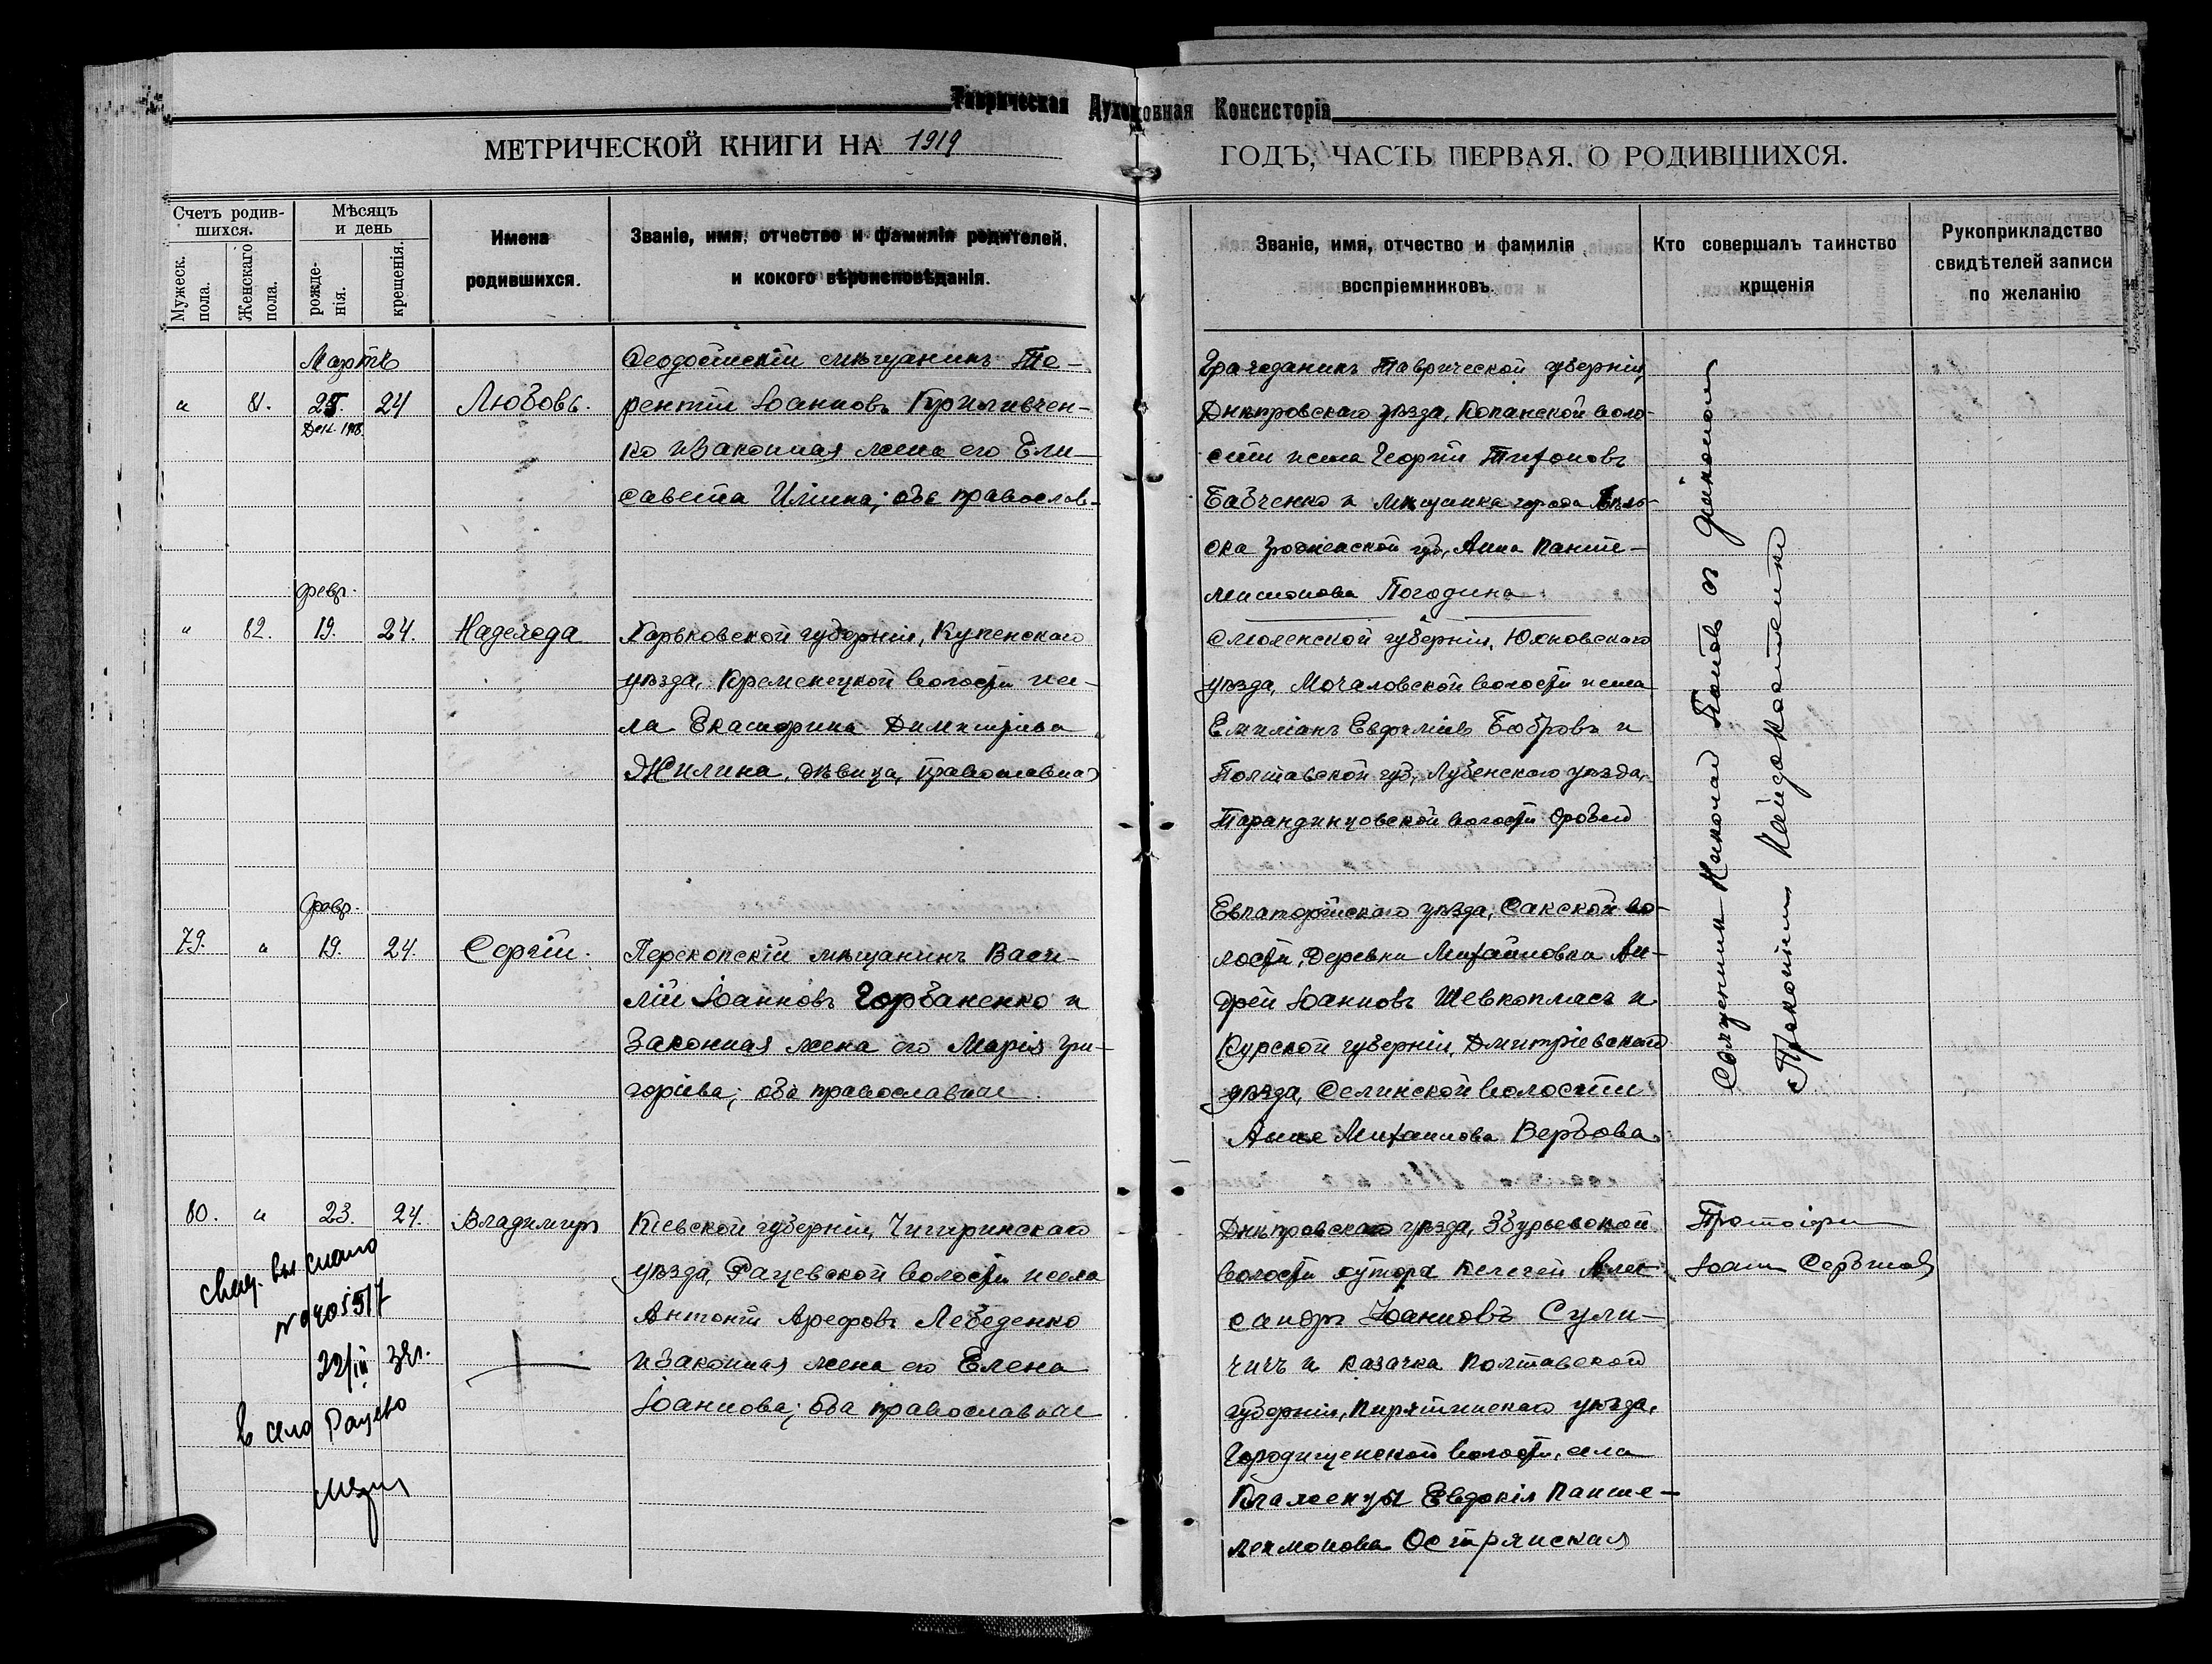 Таврическая Духовная Консисторія
МЕТРИЧЕСКОЙ КНИГИ НА 1919 ГОДЪ, ЧАСТЬ ПЕРВАЯ. О РОДИВШИХСЯ.
Счетъ родив-
шихся.
Мужеск.
пола.
Женскаго
пола.
Мѣсяцъ
и день
рожде-
нія.
крещенія.
Имена
родившихся.
Званіе, имя, отчество и фамилія родителей,
и кокого вѣроисповѣданія.
Званіе, имя, отчество и фамилія
воспріемниковъ.
Кто совершалъ таинство
крщенія
Рукоприкладство
свидѣтелей записи
по желанію
Мартъ
" 81. 25. 24 Любовь.
Дек. 1918.
Ѳеодосійскій мѣщанинъ Те-
рентій Іоанновъ Куриливчен-
ко и законная жена его Ели-
савета Иліина; оба православ.
Гражданинъ Таврической губерніи,
Днѣпровскаго уѣзда, Копанской воло-
сти и села Георгій Тихоновъ
Бабченко и мѣщанка города
Гродненской губ., Анна Панте-
леимонова Погодина
Февр.
" 82. 19. 24. Надежда
Харьковской губерніи, Купенскаго
уѣзда, Кременецкой волости и се-
ла Екатерина Димитріева
Жилина, дѣвица, православная
Смоленской губерніи, Юхновскаго
уѣзда, Мочаловской волости и села
Емиліанъ Евфиміевъ Бобровъ и
Полтавской губ., Лубенскаго уѣзда,
Тарандинцовской волости
Февр.
79. " 19. 24. Сергій.
Перекопскій мѣщанинъ Васи-
лій Іоанновъ Горбаненко и
законная жена его Марія Гри-
горіева; оба православные
Евпаторійскаго уѣзда, Сакской во-
лости, деревни Михайловки Ан-
дрей Іоанновъ Шевкоплясъ и
Курской губерніи, Дмитріевскаго
уѣзда, Селинской волости
Анна Михаилова Вербова.
Священникъ Николай Поповъ съ діакономъ
Прокопіемъ
80. " 23. 24. Владимиръ
Кіевской губерніи, Чигиринскаго
уѣзда, Рацевской волости и села
Антоній Арефовъ Лебеденко
и законная жена его Елена
Іоаннова; оба православные
Днѣпровскаго уѣзда, Збурьевской
волости хутора Кечегей Алек-
сандръ Іоанновъ Сули-
чичъ и казачка Полтавской
губерніи, Пирятинскаго уѣзда,
Городищенской волости, села
Клаженцы Евдокія Панте-
леимонова Острянская
Протоіерей
Іоаннъ Сербиновъ
свид. выслано
№ 0405517
22/III 32г.
в село Рацево